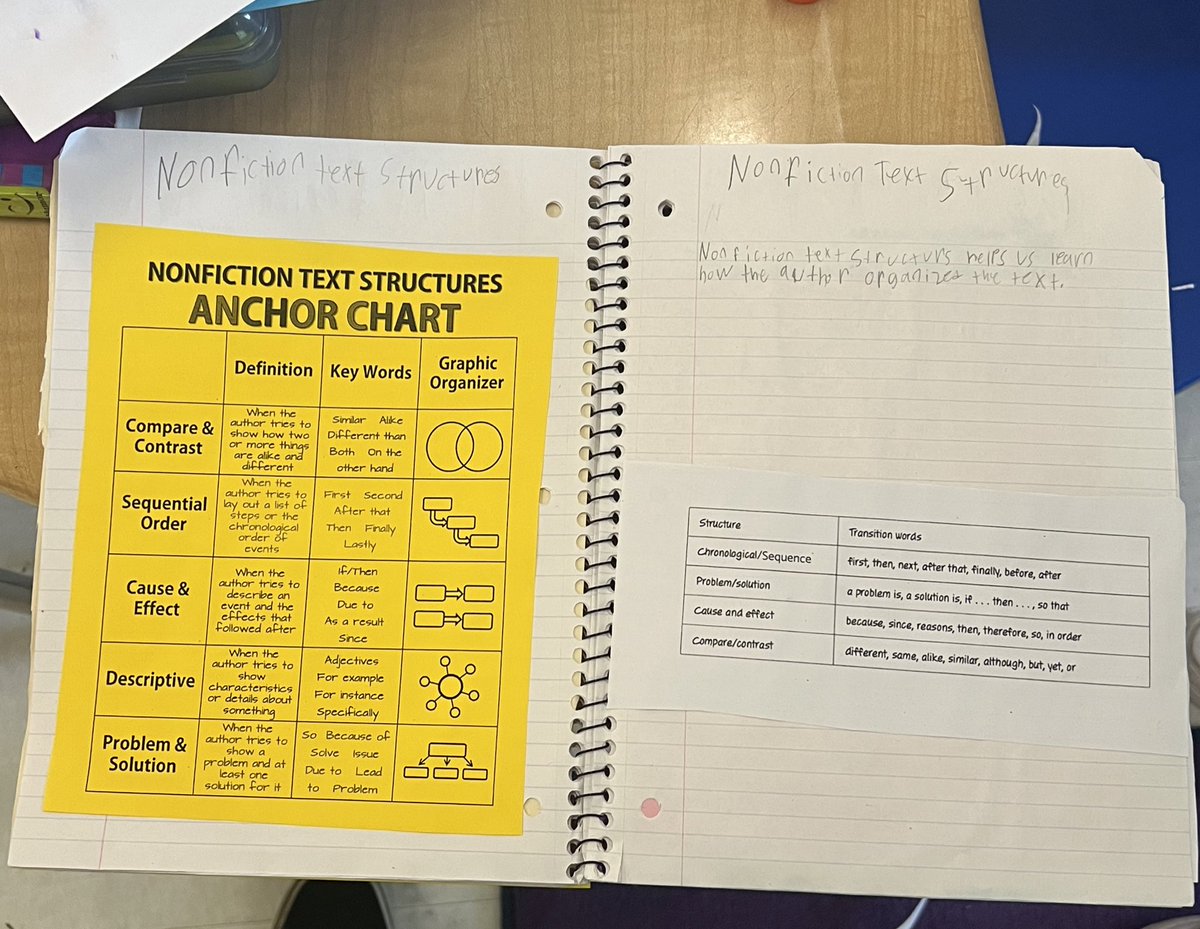 Nonfiction text structures
NONFICTION TEXT STRUCTURES
ANCHOR CHART
Definition
Key Words
Graphic
Organizer
Compare &
Contrast
When the
author tries to
show how two
or more things
are alike and
different
Similar Alike
Different than
Both On the
other hand
Sequential
Order
When the
author tries to
lay out a list of
steps or the
chronological
order of
events
First Second
After that
Then Finally
Lastly
Cause &
Effect
When the
author tries to
describe an
event and the
effects that
followed after
If/Then
Because
Due to
As a result
Since
Descriptive
When the
author tries to
show
characteristics
or details about
something
Adjectives
For example
For instance
Specifically
Problem &
Solution
When the
author tries to
show a
problem and at
least one
solution for it
So Because of
Solve Issue
Due to Lead
to Problem
Nonfiction Text Structures
Nonfiction text structurs helps us learn
how the author organizes the text.
Structure
Transition words
Chronological/Sequence
first, then, next, after that, finally, before, after
Problem/solution
a problem is, a solution is, if . . . then . . . , so that
Cause and effect
because, since, reasons, then, therefore, so, in order
Compare/contrast
different, same, alike, similar, although, but, yet, or